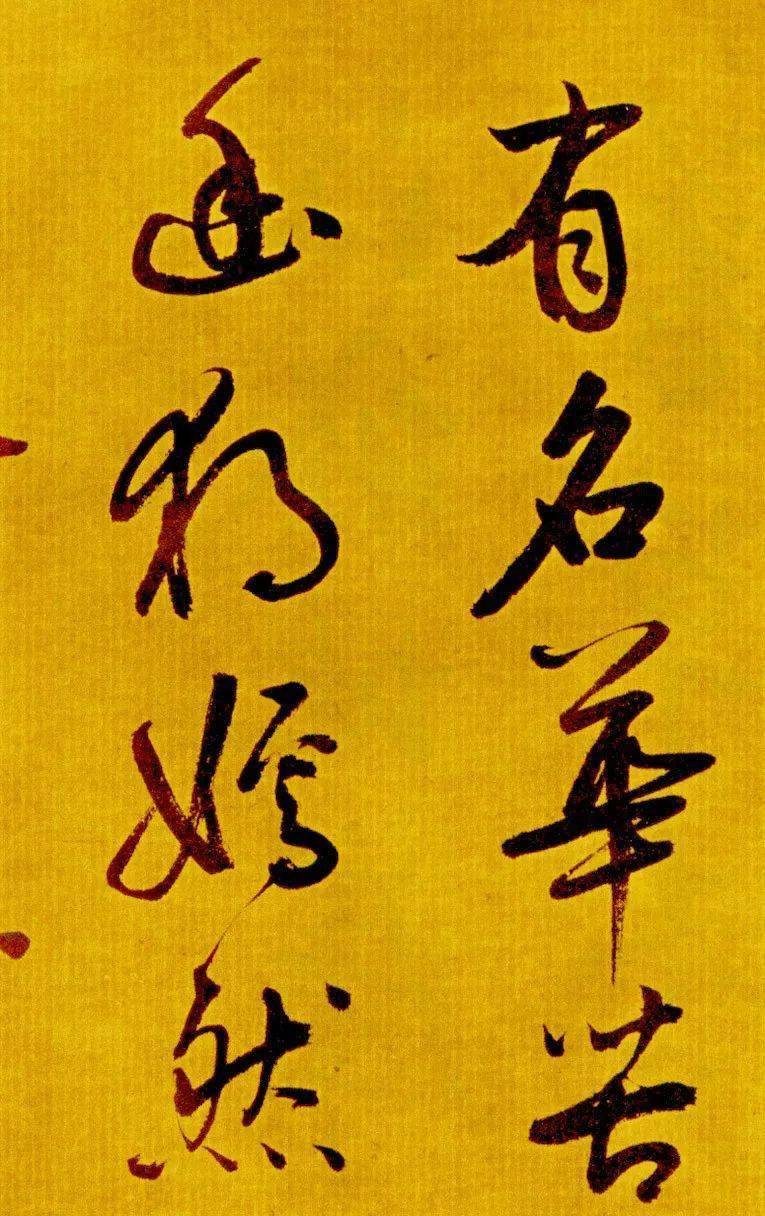 有名華苦
幽獨嫣然